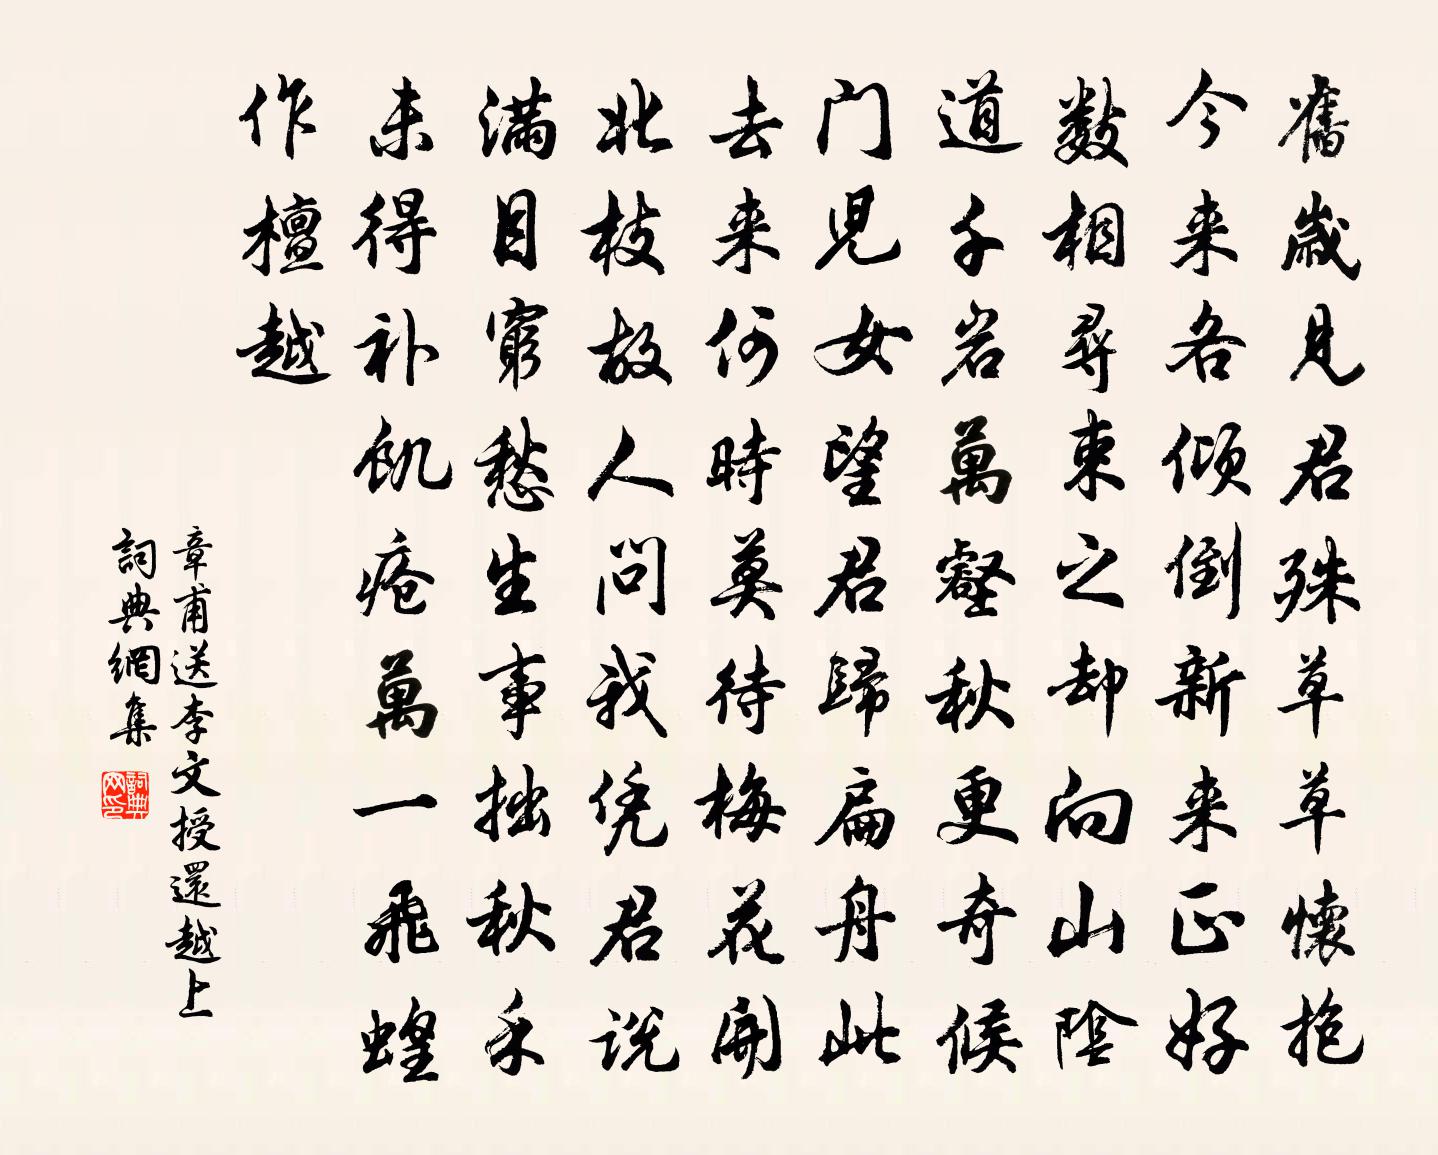 舊歲見君殊草草懷抱
今来各傾倒新来正好
數相尋東之却向山陰
道千岩萬壑秋更奇候
门児女望君歸扁舟此
去来何時莫待梅花開
北枝故人问我凭君说
满目窮愁生事拙秋禾
未得补飢疮萬一飛蝗
作檀越
章甫送李文授還越上
詞典網集
詞典网印